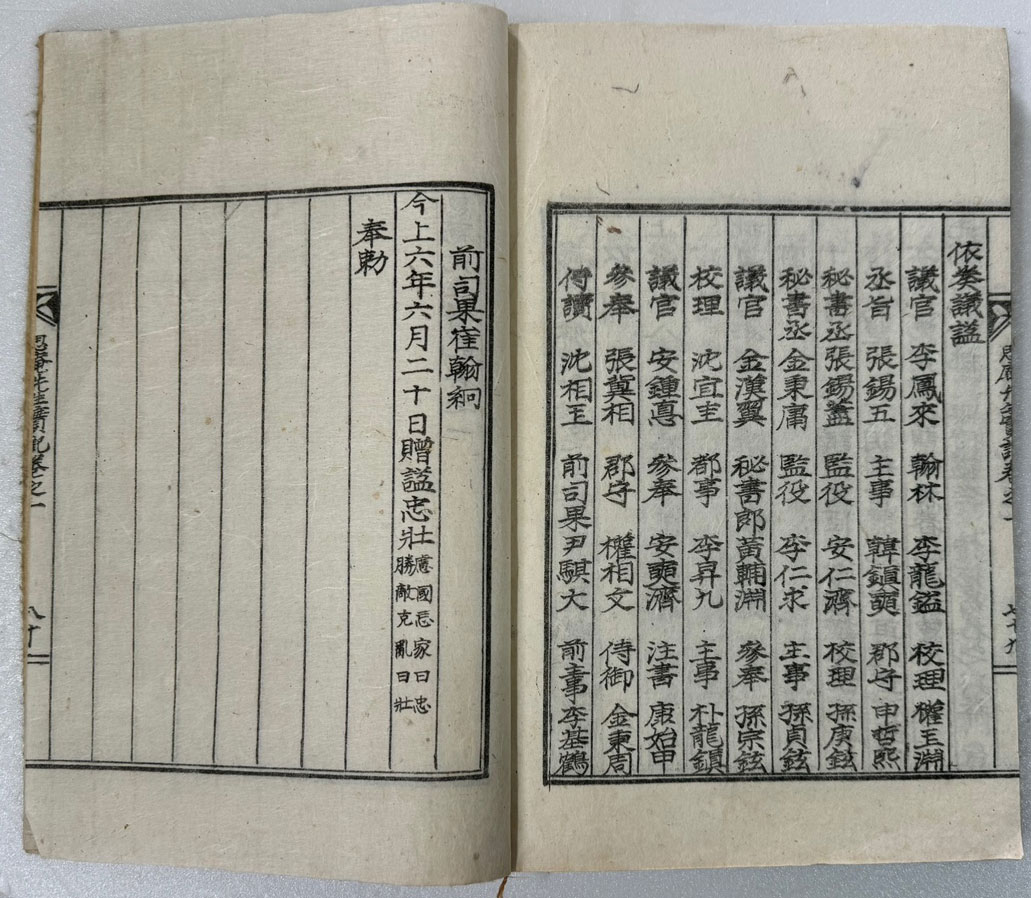 依奏議諡
議官 李鳳來 翰林 李龍鎰 校理 權玉淵
丞旨 張錫五 主事 韓鎭奭 郡守 申哲熙
秘書丞張錫藎 監役 安仁濟 校理 孫庚鉉
秘書丞金秉庸 監役 李仁求 主事 孫貞鉉
議官 金漢翼 秘書郎黃輔淵 參奉 孫宗鉉
校理 沈宜圭 都事 李昇九 主事 朴龍鎭
議官 安鍾悳 參奉 安奭濟 注書 康始甲
參奉 張冀相 郡守 權相文 侍御 金秉周
侍讀 沈相王 前司果尹騏大 前主事李基鶴
前司果崔翰絅
今上六年六月二十日贈諡忠壯慮國忘家曰忠
勝敵克亂曰壯
奉勅
先生實記卷之一 八十